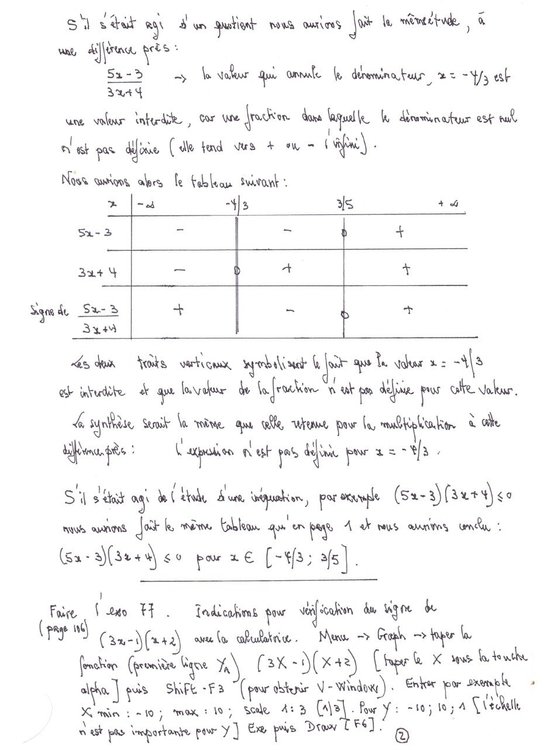 S'il s'était agi d'un quotient nous aurions fait la même étude, à
une différence près :
5x-3 / 3x+4 → la valeur qui annule le dénominateur, x = -4/3 est
une valeur interdite, car une fraction dans laquelle le dénominateur est nul
n'est pas définie (elle tend vers + ou - l'infini).
Nous aurions alors le tableau suivant :
x -∞ -4/3 3/5 +∞
5x-3 - - 0 +
3x+4 - 0 + +
Signe de 5x-3 / 3x+4 + - 0 +
Les deux traits verticaux symbolisent le fait que la valeur x = -4/3
est interdite et que la valeur de la fraction n'est pas définie pour cette valeur.
La synthèse serait la même que celle retenue pour la multiplication à cette
différence près : l'expression n'est pas définie pour x = -4/3.
S'il s'était agi de l'étude d'une inéquation, par exemple (5x-3)(3x+4) ≤ 0
nous aurions fait le même tableau qu'en page 1 et nous aurions conclu :
(5x-3)(3x+4) ≤ 0 pour x ∈ [-4/3 ; 3/5].
Faire l'exo 77. Indications pour vérification du signe de
(page 106) (3x-1)(x+2) avec la calculatrice. Menu → Graph → taper la
fonction (première ligne Y1) (3X-1)(X+2) [taper le X sous la touche
alpha] puis Shift-F3 (pour obtenir V-Window). Entrer par exemple
X, min : -10 ; max : 10 ; scale 1 : 3 [1/3]. Pour Y : -10 ; 10 ; 1 [l'échelle
n'est pas importante pour Y] Exe puis Draw [F6]. 2